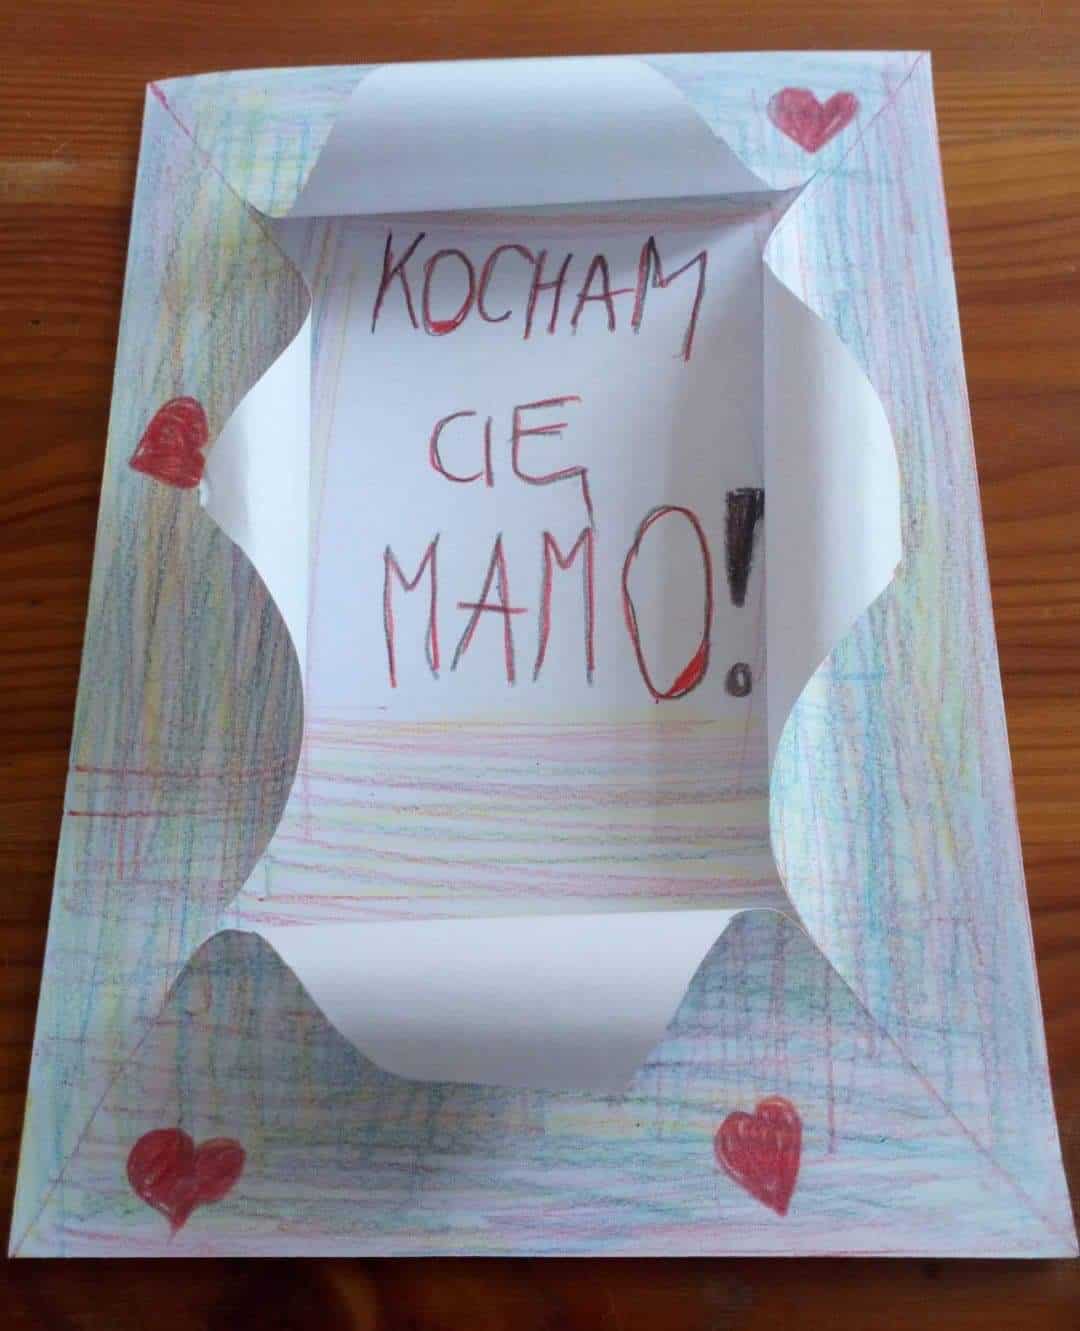 KOCHAM
CIĘ
MAMO!